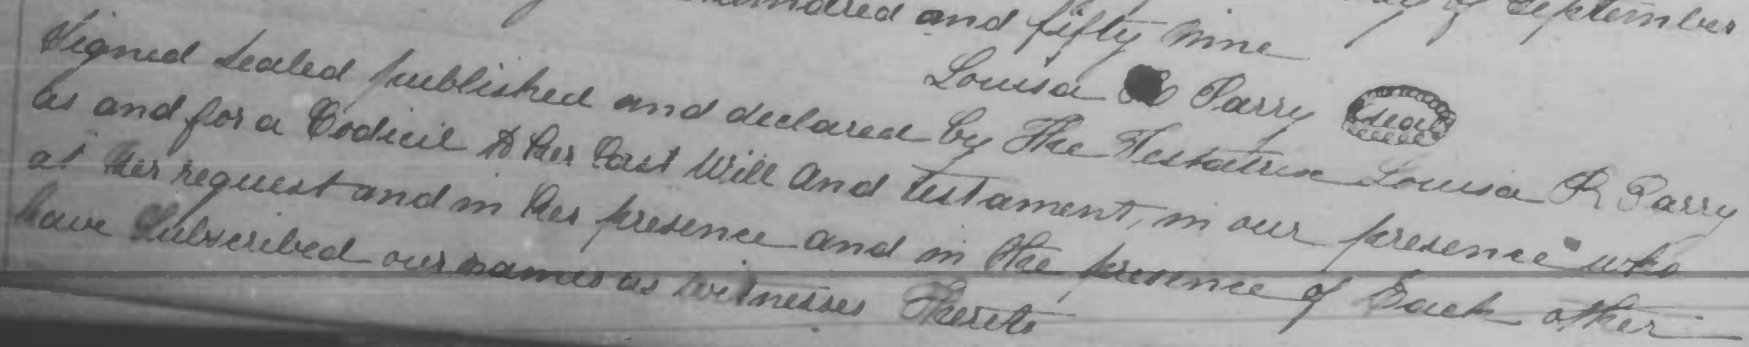 hundred and fifty Nine day of September
Louisa R Parry Seal
Signed Sealed published and declared by The Testatrix Louisa R Parry
as and for a Codicil to her Last Will and Testament, in our presence who
at her request and in her presence and in the presence of Each other
have Subscribed our names as witnesses Thereto